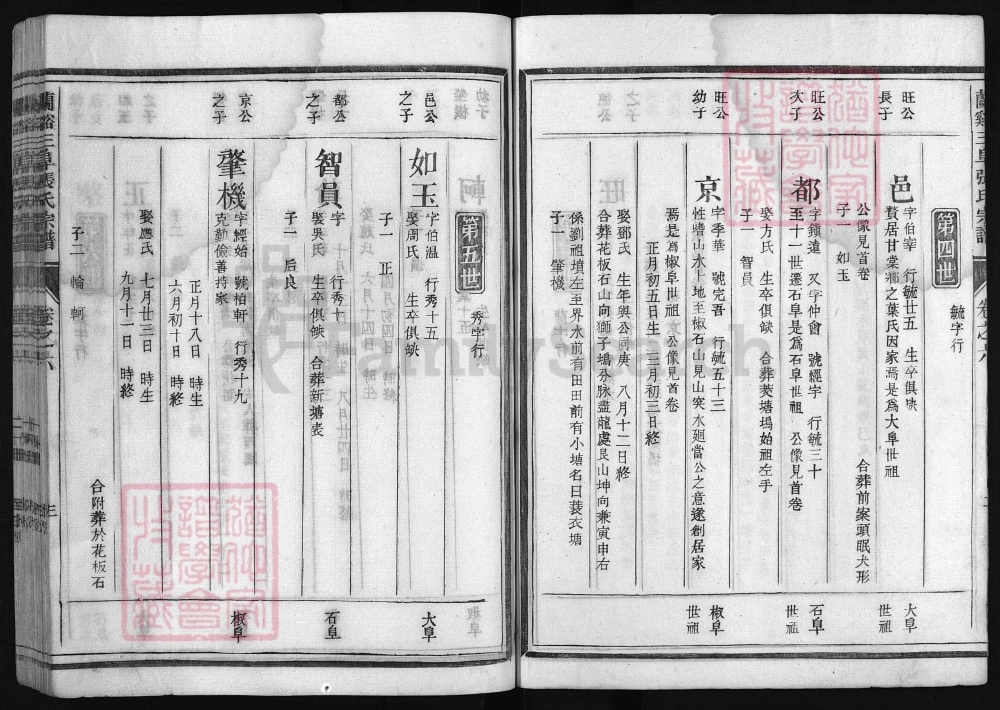 蘭谿三阜張氏宗譜
卷之六
第四世
毓字行
旺公長子
邑
字伯宰 行毓廿五 生卒俱缺
贅居甘棠鄉之葉氏因家焉是爲大阜世祖
公像見首卷 合葬前案頭眠犬形
子一 如玉
大阜世祖
旺公次子
都
字鎮遠 又字仲會 號經字 行毓三十
至十一世遷石阜是爲石阜世祖 公像見首卷
娶方氏 生卒俱缺 合葬茭塘塢始祖左手
子一 智員
石阜世祖
旺公幼子
京
字季華 號完吾 行毓五十三
性嗜山水上地至椒石山見山突水廻當公之意遂創居家
焉是爲椒阜世祖 公像見首卷
正月初五日生 三月初三日終
娶鄧氏 生年與公同庚 八月十二日終
合葬花板石山向獅子塢分脉盡龍處艮山坤向兼寅申右
係劉祖墳左至界水前有田田前有小塘名曰蓑衣塘
子一 肇機
椒阜世祖
第五世
秀字行
邑公之子
如玉
字伯温 行秀十五
娶周氏 生卒俱缺
子一 正
大阜
都公之子
智員
字 行秀十
娶吳氏 生卒俱缺 合葬新塘表
子一 后良
石阜
京公之子
肇機
字經始 號柏軒 行秀十九
克勤儉善持家
正月十八日 時生
六月初十日 時終
娶應氏 七月廿三日 時生
九月十一日 時終
合附葬於花板石
子二 輪 軻
椒阜
蘭谿三阜張氏宗譜
卷之六